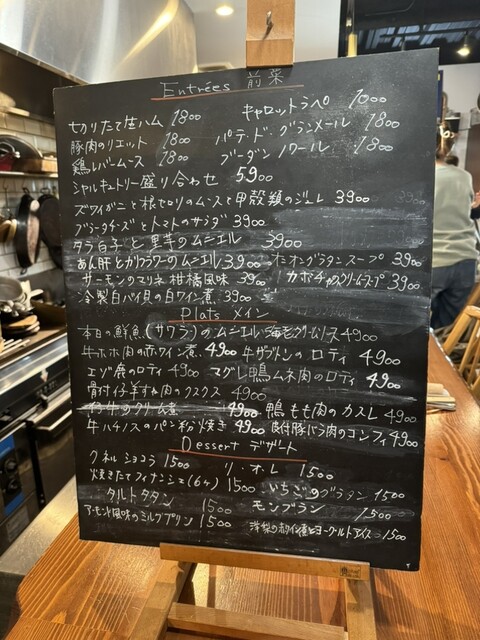 Entrées 前菜
切りたて生ハム 1800 キャロットラペ 1000
豚肉のリエット 1800 パテ・ド・グランメール 1800
鶏レバームース 1800 ブーダンノワール 1800
シャルキュトリー盛り合わせ 5900
ズワイガニと根セロリのムースと甲殻類のジュレ 3900
ブラータチーズとトマトのサラダ 3900
タラ白子と里芋のムニエル 3900
あん肝とカリフラワーのムニエル 3900 オニオングラタンスープ 3900
サーモンのマリネ 柑橘風味 3900 カボチャのクリームスープ 3900
冷製白バイ貝の白ワイン煮 3900
Plats メイン
本日の鮮魚(サワラ)のムニエル 海老クリームソース 4900
牛ホホ肉の赤ワイン煮 4900 牛サガリのロティ 4900
エゾ鹿のロティ 4900 マグレ鴨ムネ肉のロティ 4900
骨付仔羊すね肉のクスクス 4900
仔牛のクリーム煮 4900 鴨もも肉のカスレ 4900
牛ハチノスのパン粉焼き 4900 皮付豚バラ肉のコンフィ 4900
Dessert デザート
クネルショコラ 1500 リ・オ・レ 1500
焼きたてフィナンシェ(6ヶ) 1500 いちごのグラタン 1500
タルトタタン 1500 モンブラン 1500
アーモンド風味のミルクプリン 1500 洋梨の赤ワイン煮とヨーグルトアイス 1500